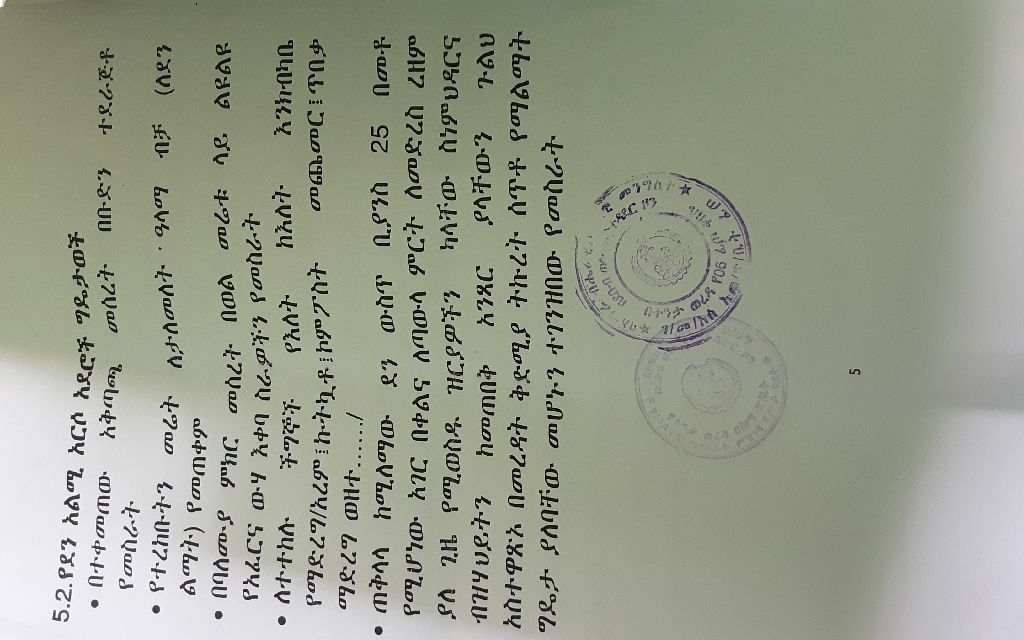 5.2.የደን አልሚ አርሶ አደሮች ግዴታወች
• በተቀመጠው አቅጣጫ መሰረት በቡድን ተደራጅቶ
የመስራት
• የተረከቡትን መሬት ለታለመለት ዓላማ ብቻ (ለደን
ልማት) የመጠቀም
• በባለሙያ ምክር መሰረት በወል መሬቱ ላይ ልዩልዩ
የአፈርና ውሃ እቀባ ስራዎችን የመስራት
• ለተተከሉ ችግኞች የእለት ከእለት እንክብካቤ
የማድረግ/አረም፤ኩትኳቶ፤ኮምፖስት መጨመር፤ጥበቃ
ማድረግ ወዘተ....../
• ጠቅላላ ከሚለማው ደን ውስጥ ቢያንስ 25 በመቶ
የሚሆነው አገር በቀልና ለጣውላ ምርት ለመድረስ ረዘም
ያለ ጊዜ የሚወስዱ ዝርያዎችን ካላቸው ስነምህዳርና
ብዝሃህይትን ከመጠበቅ አንጻር ያላቸውን ጉልህ
አስተዋጽኦ በመረዳት ቅድሚያ ትኩረት ሰጥቶ የማልማት
ግዴታ ያለባቸው መሆኑን ተገንዝበው የመስራት
5